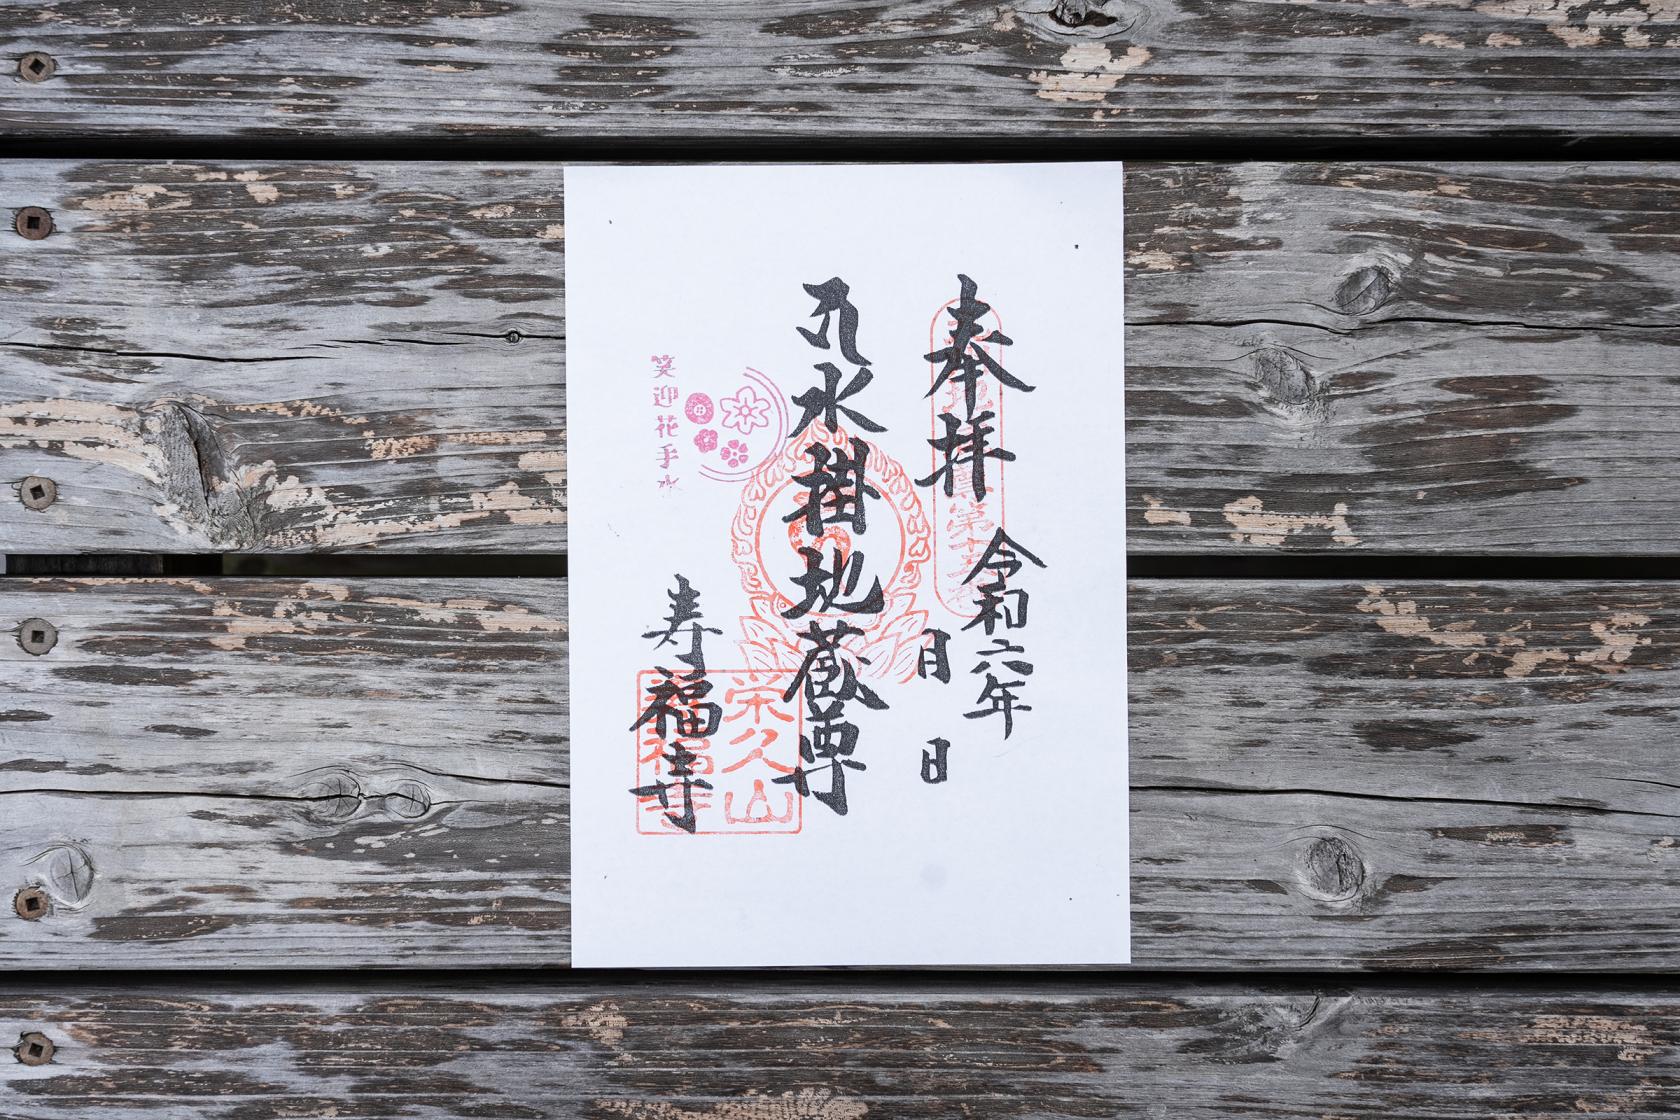 奉拝
令和六年
月 日
水掛地蔵尊
笑迎花手水
寿福寺
栄久山
寿福寺